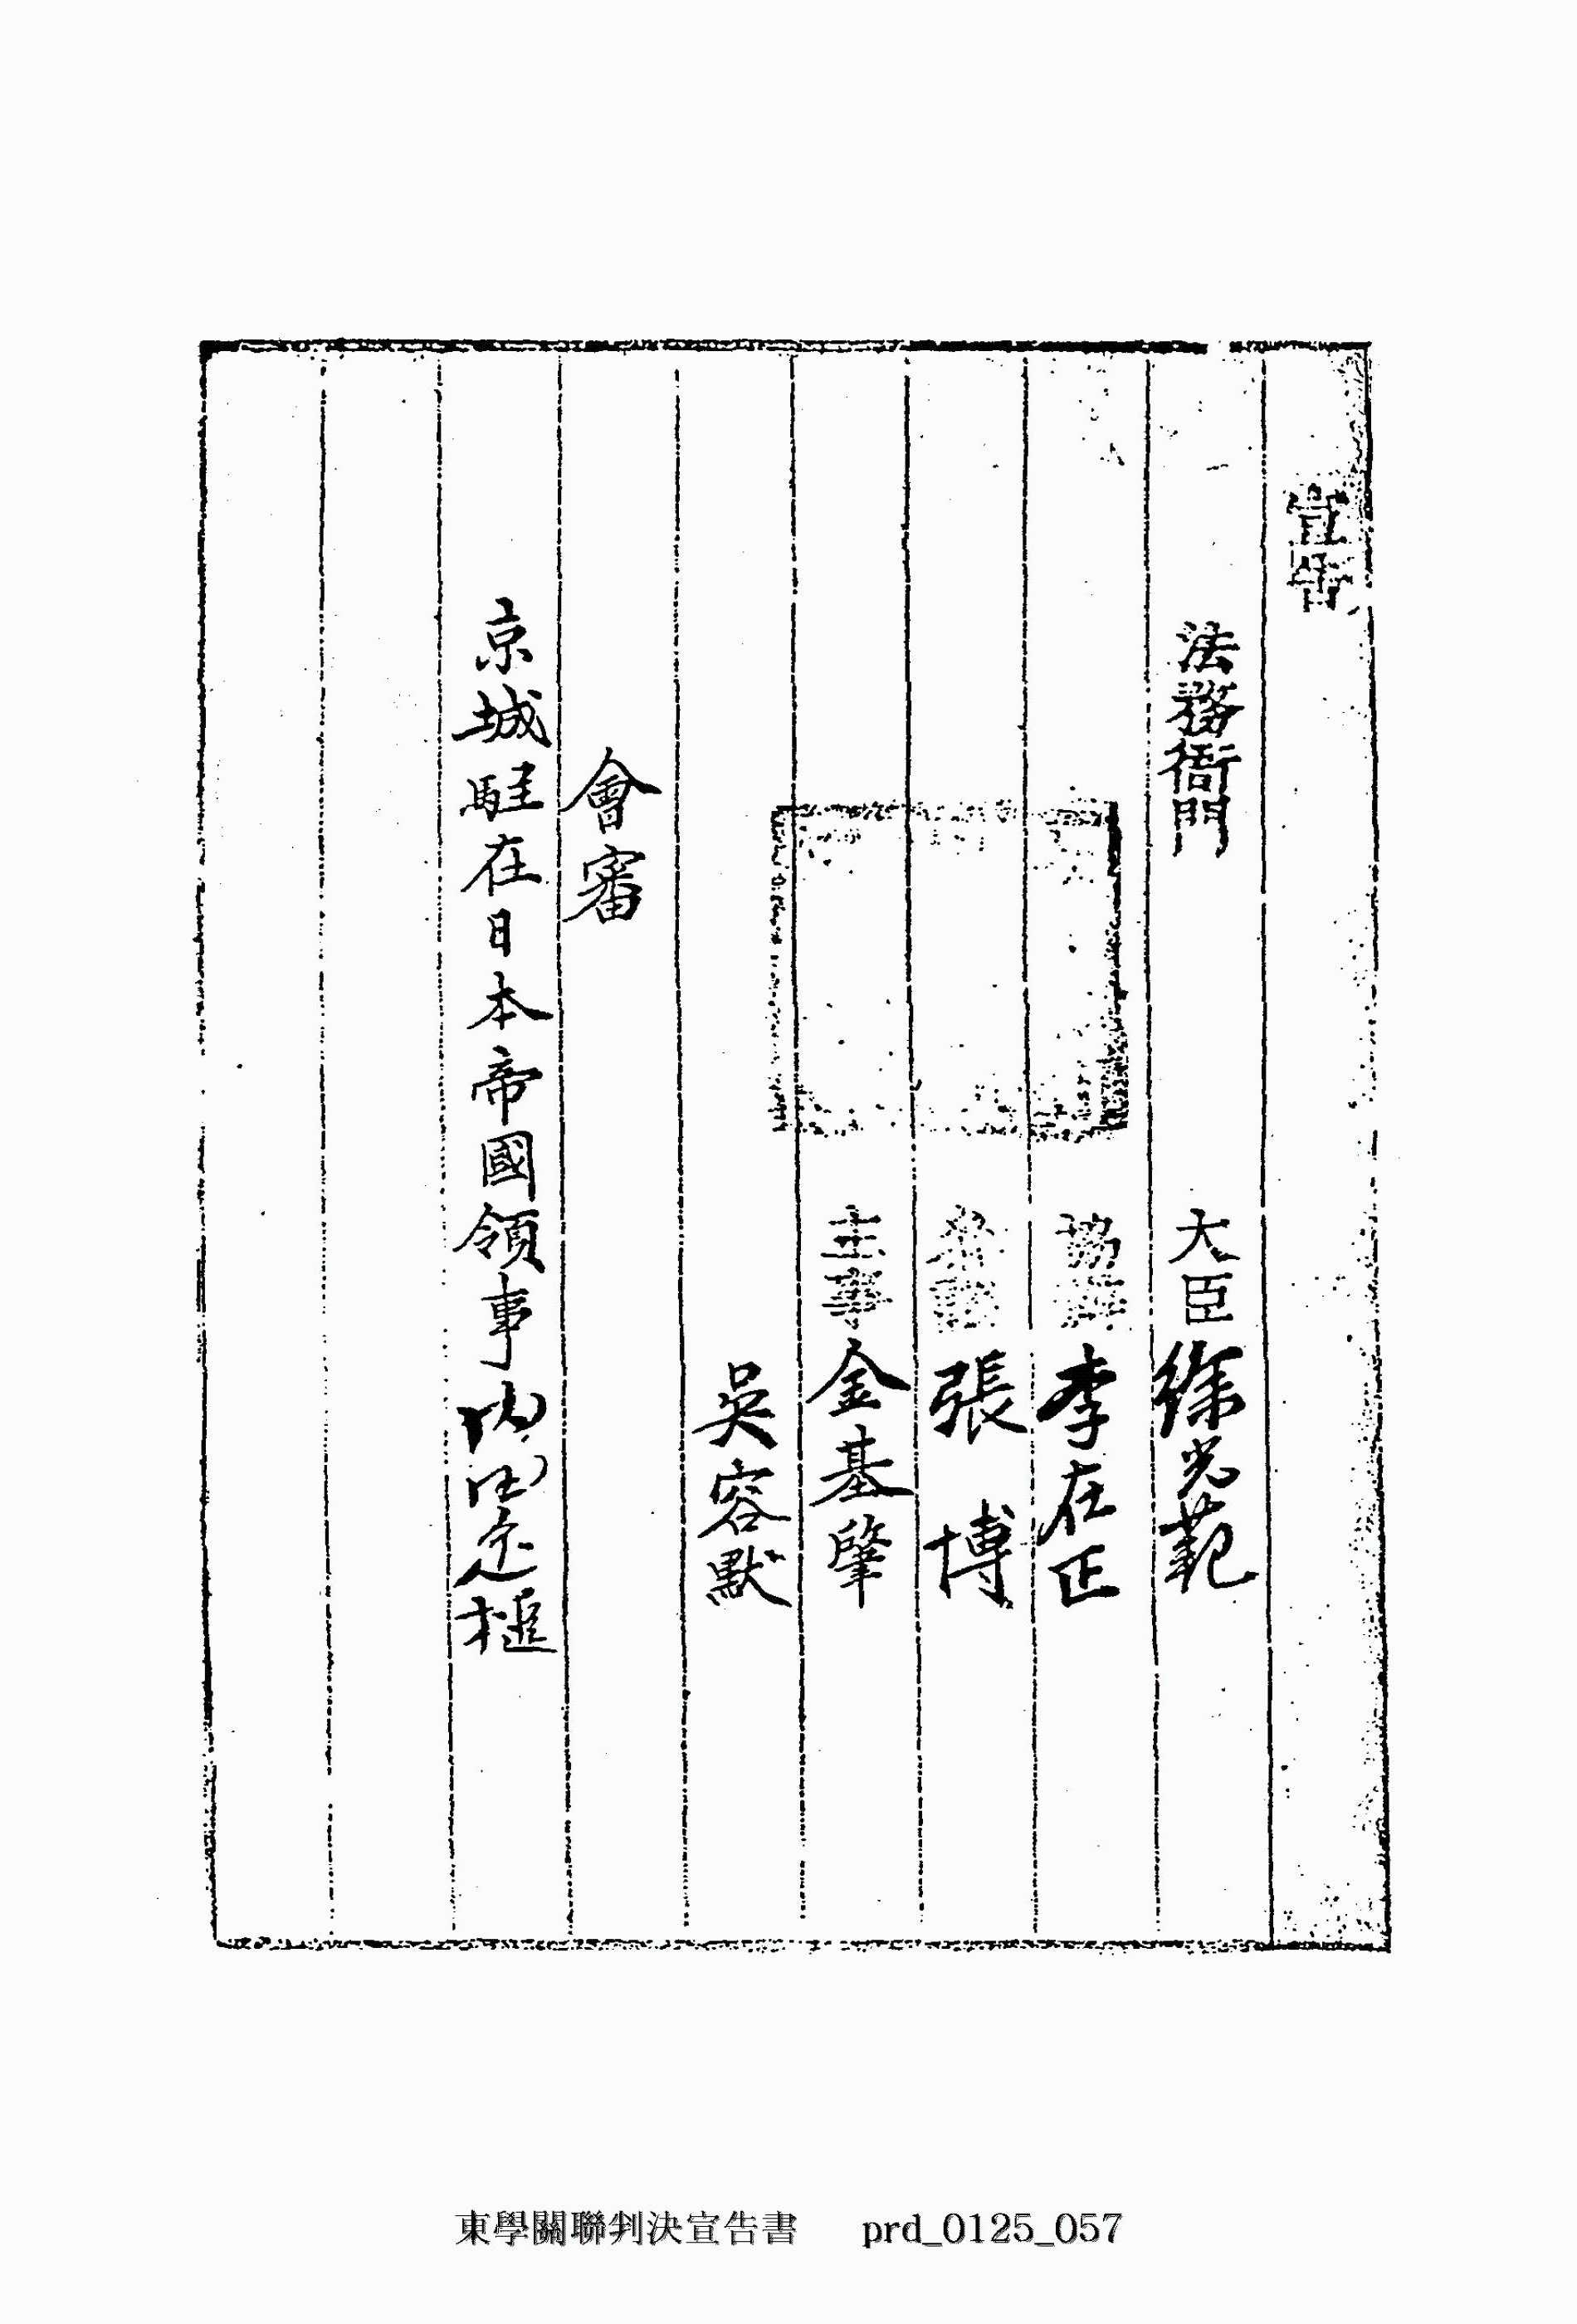 宣告
法務衙門 大臣 徐光範
協辦 李在正
參議 張 博
主事 金基肇
吳容默
會審
京城駐在日本帝國領事 内田定槌
東學關聯判決宣告書 prd_0125_057